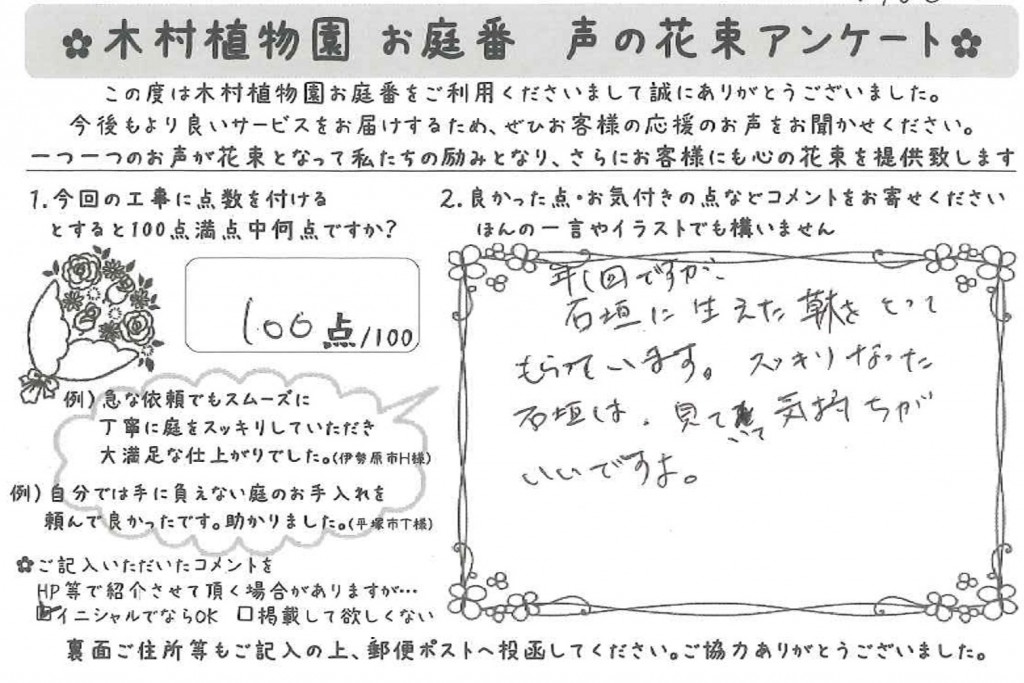 木村植物園 お庭番 声の花束アンケート
この度は木村植物園お庭番をご利用くださいまして誠にありがとうございました。
今後もより良いサービスをお届けするため、ぜひお客様の応援のお声をお聞かせください。
一つ一つのお声が花束となって私たちの励みとなり、さらにお客様にも心の花束を提供致します
1.今回の工事に点数を付ける
とすると100点満点中何点ですか?
100点/100
例)急な依頼でもスムーズに
丁寧に庭をスッキリしていただき
大満足な仕上がりでした。(伊勢原市H様)
例)自分では手に負えない庭のお手入れを
頼んで良かったです。助かりました。(平塚市T様)
✿ご記入いただいたコメントを
HP等で紹介させて頂く場合がありますが…
☑イニシャルでならOK □掲載して欲しくない
2.良かった点・お気付きの点などコメントをお寄せください
ほんの一言やイラストでも構いません
年1回ですが、
石垣に生えた草をとって
もらっています。スッキリなった
石垣は、見ていて気持ちが
いいですよ。
裏面ご住所等もご記入の上、郵便ポストへ投函してください。ご協力ありがとうございました。